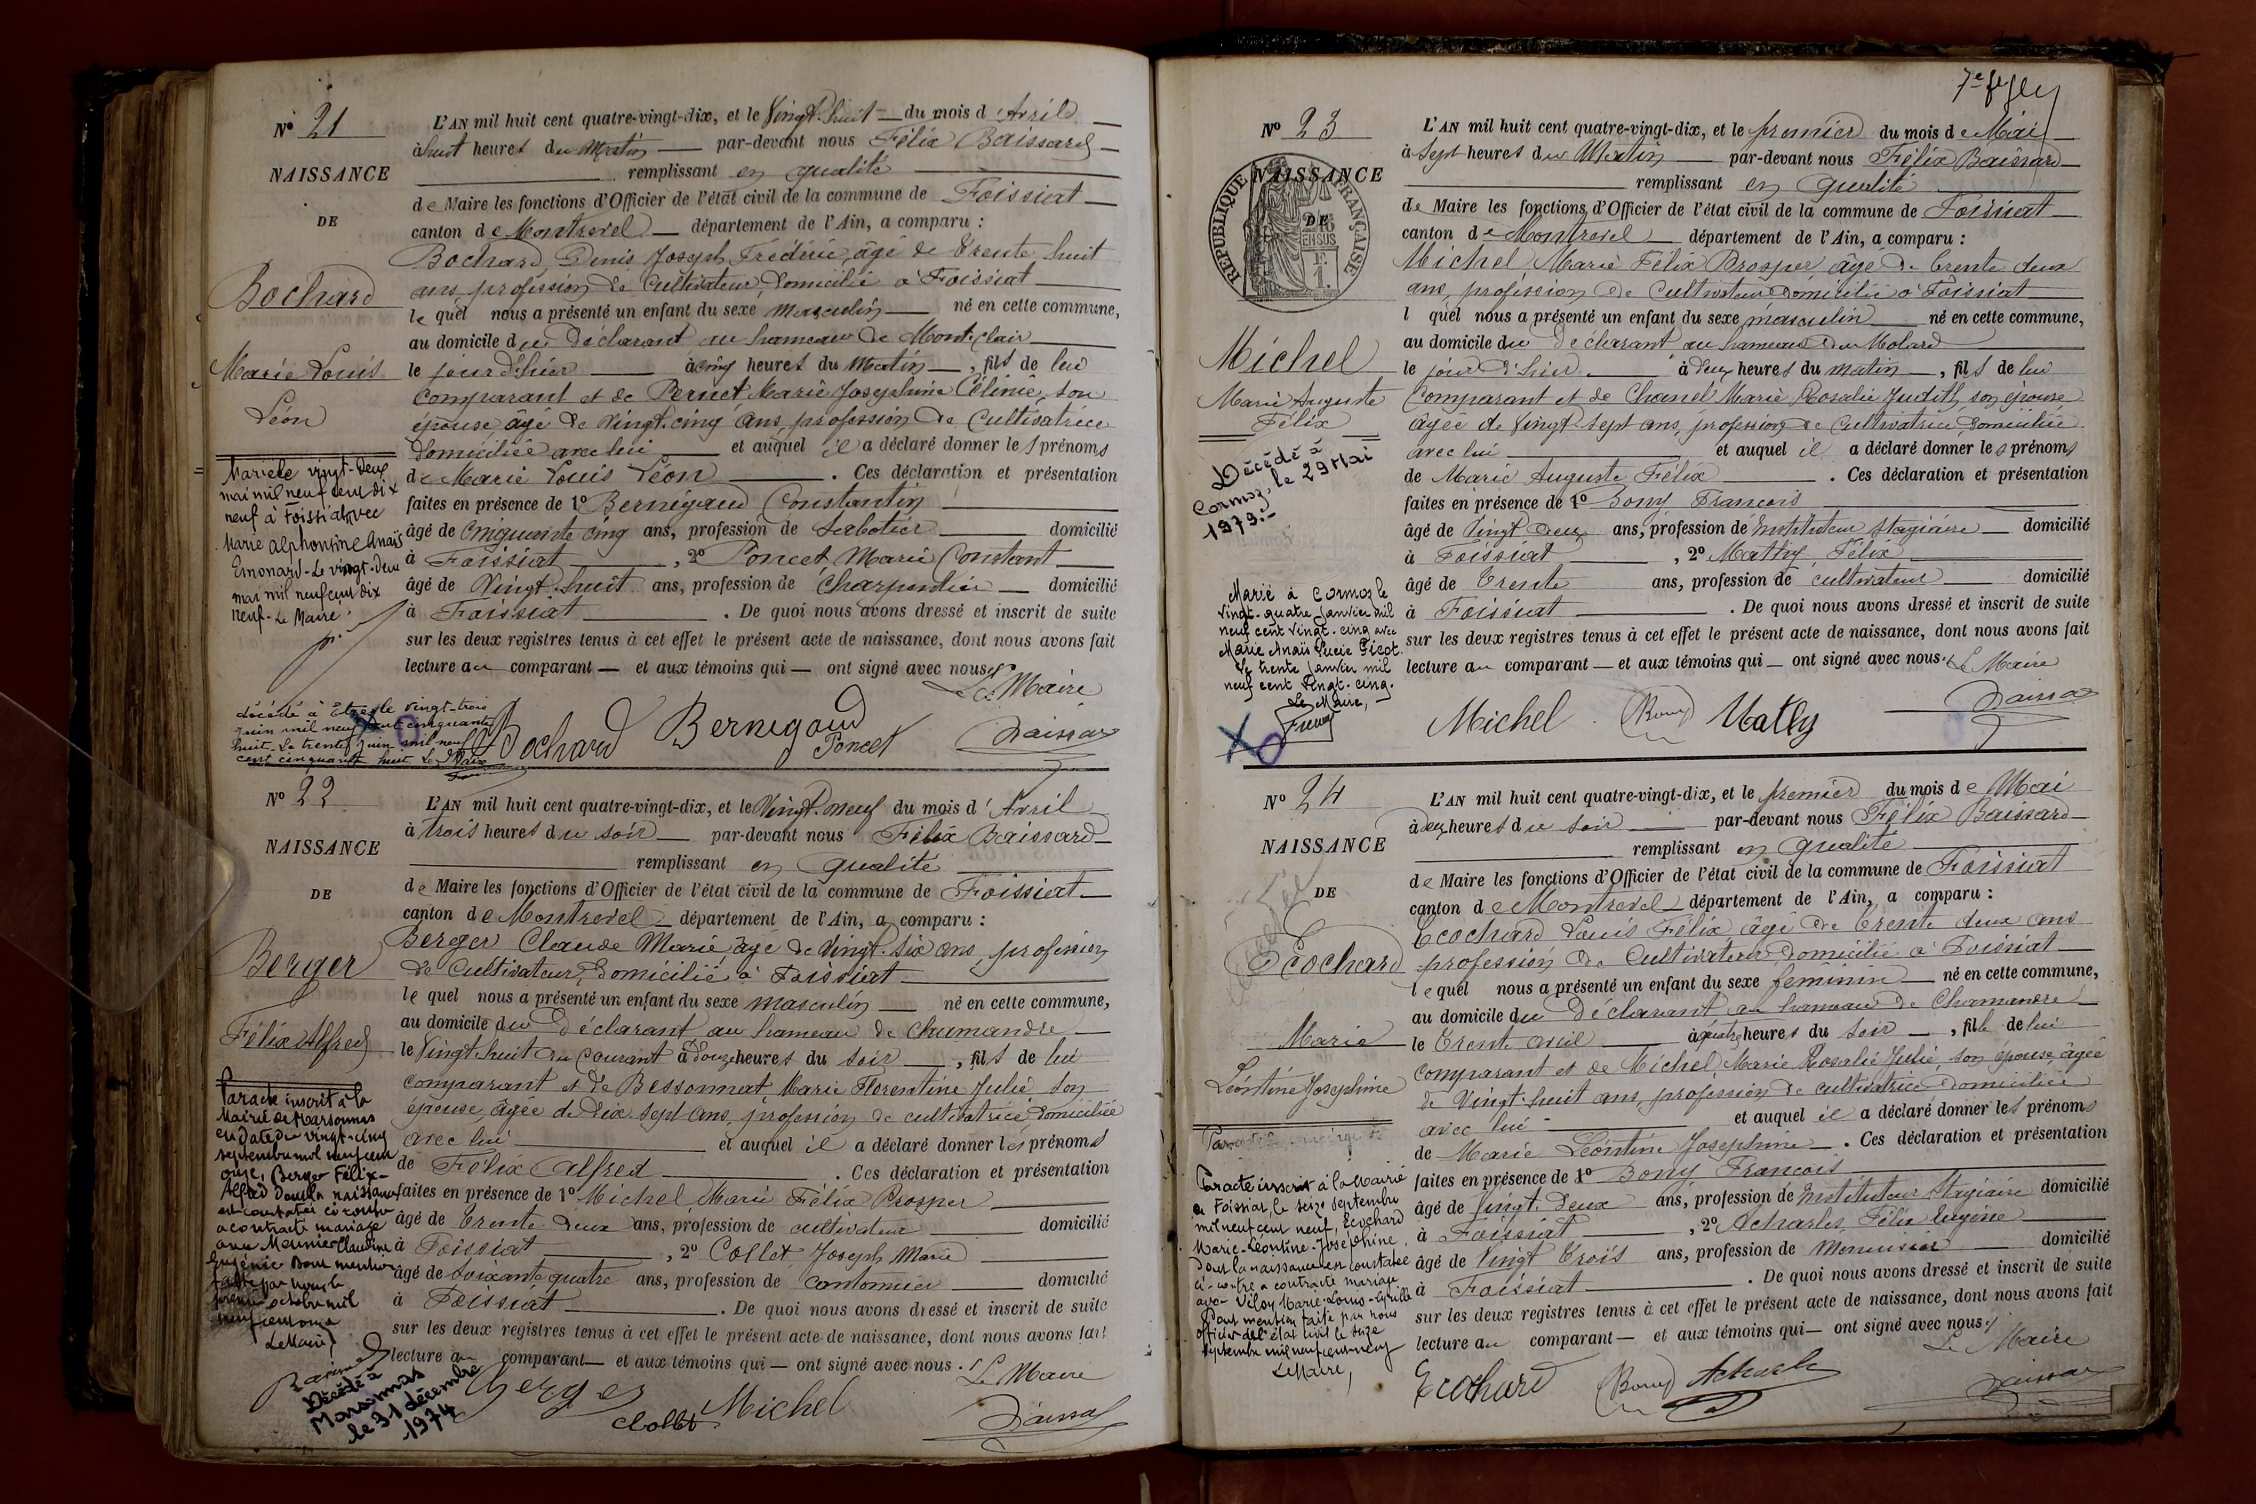 Nº 21
NAISSANCE
DE
Bochard
Marie Louis
Léon
Marié le vingt-deux
mai mil neuf cent dix
neuf à Foissiat avec
Marie Alphonsine Anaïs
Emonard - Le vingt-deux
mai mil neuf cent dix
neuf - Le Maire
décédé à Etrez le vingt-trois
juin mil neuf cent cinquante
huit. Le trente juin mil neuf
cent cinquante huit Le Maire
L'AN mil huit cent quatre-vingt-dix, et le Vingt-huit du mois d'Avril
à huit heures du Matin par-devant nous Félix Baissard
remplissant en qualité
de Maire les fonctions d'Officier de l'état civil de la commune de Foissiat
canton de Montrevel département de l'Ain, a comparu :
Bochard Denis Joseph Frédéric, âgé de trente huit
ans, profession de Cultivateur, domicilié à Foissiat
lequel nous a présenté un enfant du sexe masculin né en cette commune,
au domicile du Déclarant au hameau de Mont-Clair
le jour d'hier à cinq heures du Matin, fils de lui
Comparant et de Pernet Marie Josephine Célinie, son
épouse âgé de Vingt-cinq ans, profession de Cultivatrice
domiciliée avec lui et auquel il a déclaré donner les prénoms
de Marie Louis Léon. Ces déclaration et présentation
faites en présence de 1º Bernigaud Constantin
âgé de Cinquante cinq ans, profession de Sabotier domicilié
à Foissiat, 2º Poncet Marie Constant
âgé de Vingt-huit ans, profession de Charpentier domicilié
à Foissiat. De quoi nous avons dressé et inscrit de suite
sur les deux registres tenus à cet effet le présent acte de naissance, dont nous avons fait
lecture au comparant et aux témoins qui ont signé avec nous.
Le Maire
Bochard Bernigaud Poncet Baissard
Nº 22
NAISSANCE
DE
Berger
Félix Alfred
Par acte inscrit à la
Mairie de Marsonnas
en date du vingt-cinq
septembre mil neuf cent
onze, Berger Félix-
Alfred dont la naissance
est constatée ci-contre
a contracté mariage
avec Meunier Claudine
Eugénie Dont mention
faite par nous le
premier octobre mil
neuf cent onze
Le Maire,
Décédé à
Marsonnas
le 31 décembre
1974
L'AN mil huit cent quatre-vingt-dix, et le Vingt-neuf du mois d'Avril
à trois heures du soir par-devant nous Félix Baissard
remplissant en qualité
de Maire les fonctions d'Officier de l'état civil de la commune de Foissiat
canton de Montrevel département de l'Ain, a comparu :
Berger Claude Marie, âgé de Vingt-six ans, profession
de Cultivateur, domicilié à Foissiat
lequel nous a présenté un enfant du sexe masculin né en cette commune,
au domicile du Déclarant au hameau de Chamandre
le Vingt-huit du Courant à Douze heures du soir, fils de lui
comparant et de Bessonnat Marie Florentine Julie son
épouse, âgée de dix-sept ans, profession de cultivatrice domiciliée
avec lui et auquel il a déclaré donner les prénoms
de Félix Alfred. Ces déclaration et présentation
faites en présence de 1º Michel, Marie Félix Prosper
âgé de trente deux ans, profession de cultivateur domicilié
à Foissiat, 2º Collet, Joseph Marie
âgé de Soixante quatre ans, profession de cantonnier domicilié
à Foissiat. De quoi nous avons dressé et inscrit de suite
sur les deux registres tenus à cet effet le présent acte de naissance, dont nous avons fait
lecture au comparant et aux témoins qui ont signé avec nous.
Le Maire
Berger Collet Michel Baissard
Nº 23
NAISSANCE
DE
RÉPUBLIQUE FRANÇAISE
Michel
Marie Auguste
Félix
Décédé à
Cormoz, le 29 Mai
1979.-
Marié à Cormoz le
vingt-quatre Janvier mil
neuf cent vingt-cinq avec
Marie Anaïs Lucie Ficot.
Le trente Janvier mil
neuf cent vingt-cinq.
Le Maire,
L'AN mil huit cent quatre-vingt-dix, et le premier du mois de Mai
à Sept heures du Matin par-devant nous Félix Baissard
remplissant en qualité
de Maire les fonctions d'Officier de l'état civil de la commune de Foissiat
canton de Montrevel département de l'Ain, a comparu :
Michel Marie Félix Prosper, âgé de trente deux
ans, profession de Cultivateur domicilié à Foissiat
lquel nous a présenté un enfant du sexe masculin né en cette commune,
au domicile du Déclarant au hameau du Molard
le jour d'hier à deux heures du matin, fils de lui
Comparant et de Chanel Marie Rosalie Judith, son épouse
âgée de Vingt-sept ans, profession de Cultivatrice domiciliée
avec lui et auquel il a déclaré donner les prénoms
de Marie Auguste Félix. Ces déclaration et présentation
faites en présence de 1º Bony François
âgé de Vingt deux ans, profession de Instituteur Stagiaire domicilié
à Foissiat, 2º Mathy, Félix
âgé de trente ans, profession de cultivateur domicilié
à Foissiat. De quoi nous avons dressé et inscrit de suite
sur les deux registres tenus à cet effet le présent acte de naissance, dont nous avons fait
lecture au comparant et aux témoins qui ont signé avec nous. Le Maire
Michel Bony Mathy Baissard
Nº 24
NAISSANCE
DE
Ecochard
Marie
Léontine Josephine
Par acte inscrit à la Mairie
de Foissiat, le seize septembre
mil neuf cent neuf, Ecochard
Marie-Léontine-Joséphine,
dont la naissance est constatée
ci-contre a contracté mariage
avec Marie-Louis-Cyrille
Dont mention faite par nous
officier de l'état civil le seize
septembre mil neuf cent neuf
Le Maire,
L'AN mil huit cent quatre-vingt-dix, et le premier du mois de Mai
à deux heures du soir par-devant nous Félix Baissard
remplissant en qualité
de Maire les fonctions d'Officier de l'état civil de la commune de Foissiat
canton de Montrevel département de l'Ain, a comparu :
Ecochard Louis Félix âgé de trente deux ans
profession de Cultivateur domicilié à Foissiat
lequel nous a présenté un enfant du sexe féminin né en cette commune,
au domicile du Déclarant au hameau de Chamandre
le trente avril à quatre heures du soir, fille de lui
comparant et de Michel, Marie Rosalie Julie, son épouse, âgée
de Vingt-huit ans, profession de cultivatrice domiciliée
avec lui et auquel il a déclaré donner les prénoms
de Marie Léontine Josephine. Ces déclaration et présentation
faites en présence de 1º Bony François
âgé de Vingt deux ans, profession de Instituteur Stagiaire domicilié
à Foissiat, 2º Acharles, Félix Eugène
âgé de Vingt trois ans, profession de Menuisier domicilié
à Foissiat. De quoi nous avons dressé et inscrit de suite
sur les deux registres tenus à cet effet le présent acte de naissance, dont nous avons fait
lecture au comparant et aux témoins qui ont signé avec nous.
Le Maire
Ecochard Bony Acharles Baissard